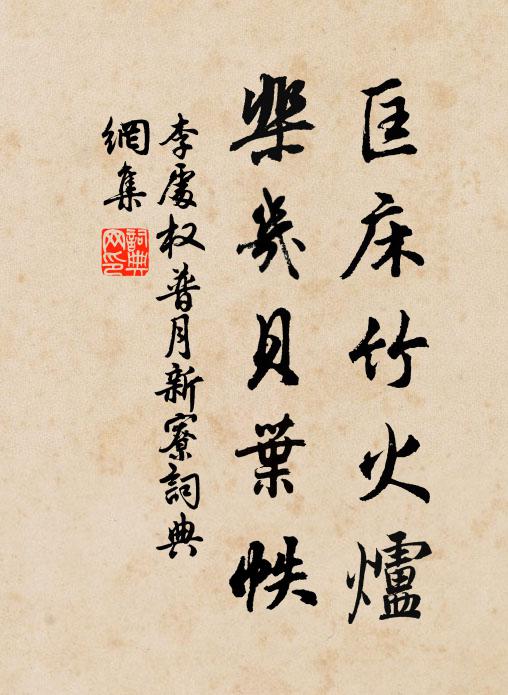 匡床竹火爐
棐几貝葉帙
李處权普月新寮詞典
網集
詞典網印